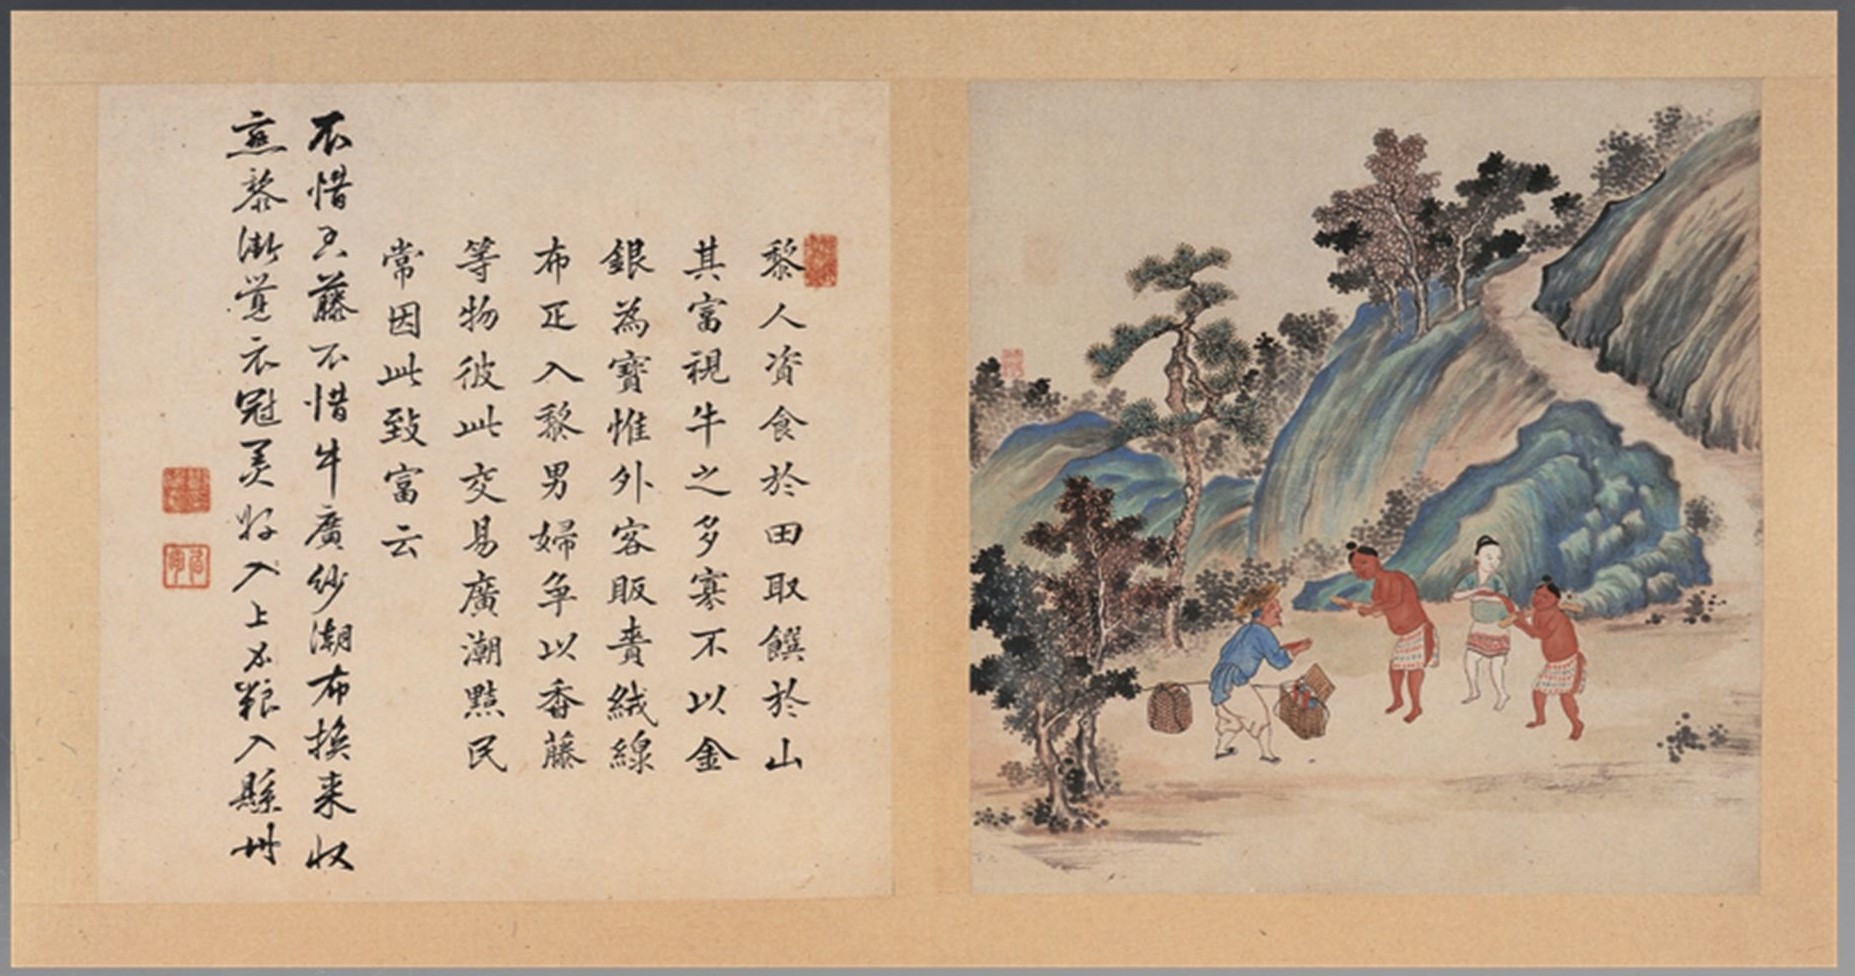 黎人資食於田取饌於山
其富視牛之多寡不以金
銀為寶惟外客販賣絨線
布疋入黎男婦争以香藤
等物彼此交易廣潮黠民
常因此致富云
不惜藤不惜牛廣紗潮布換来収
黎漸覺衣冠美好入上粮入縣州